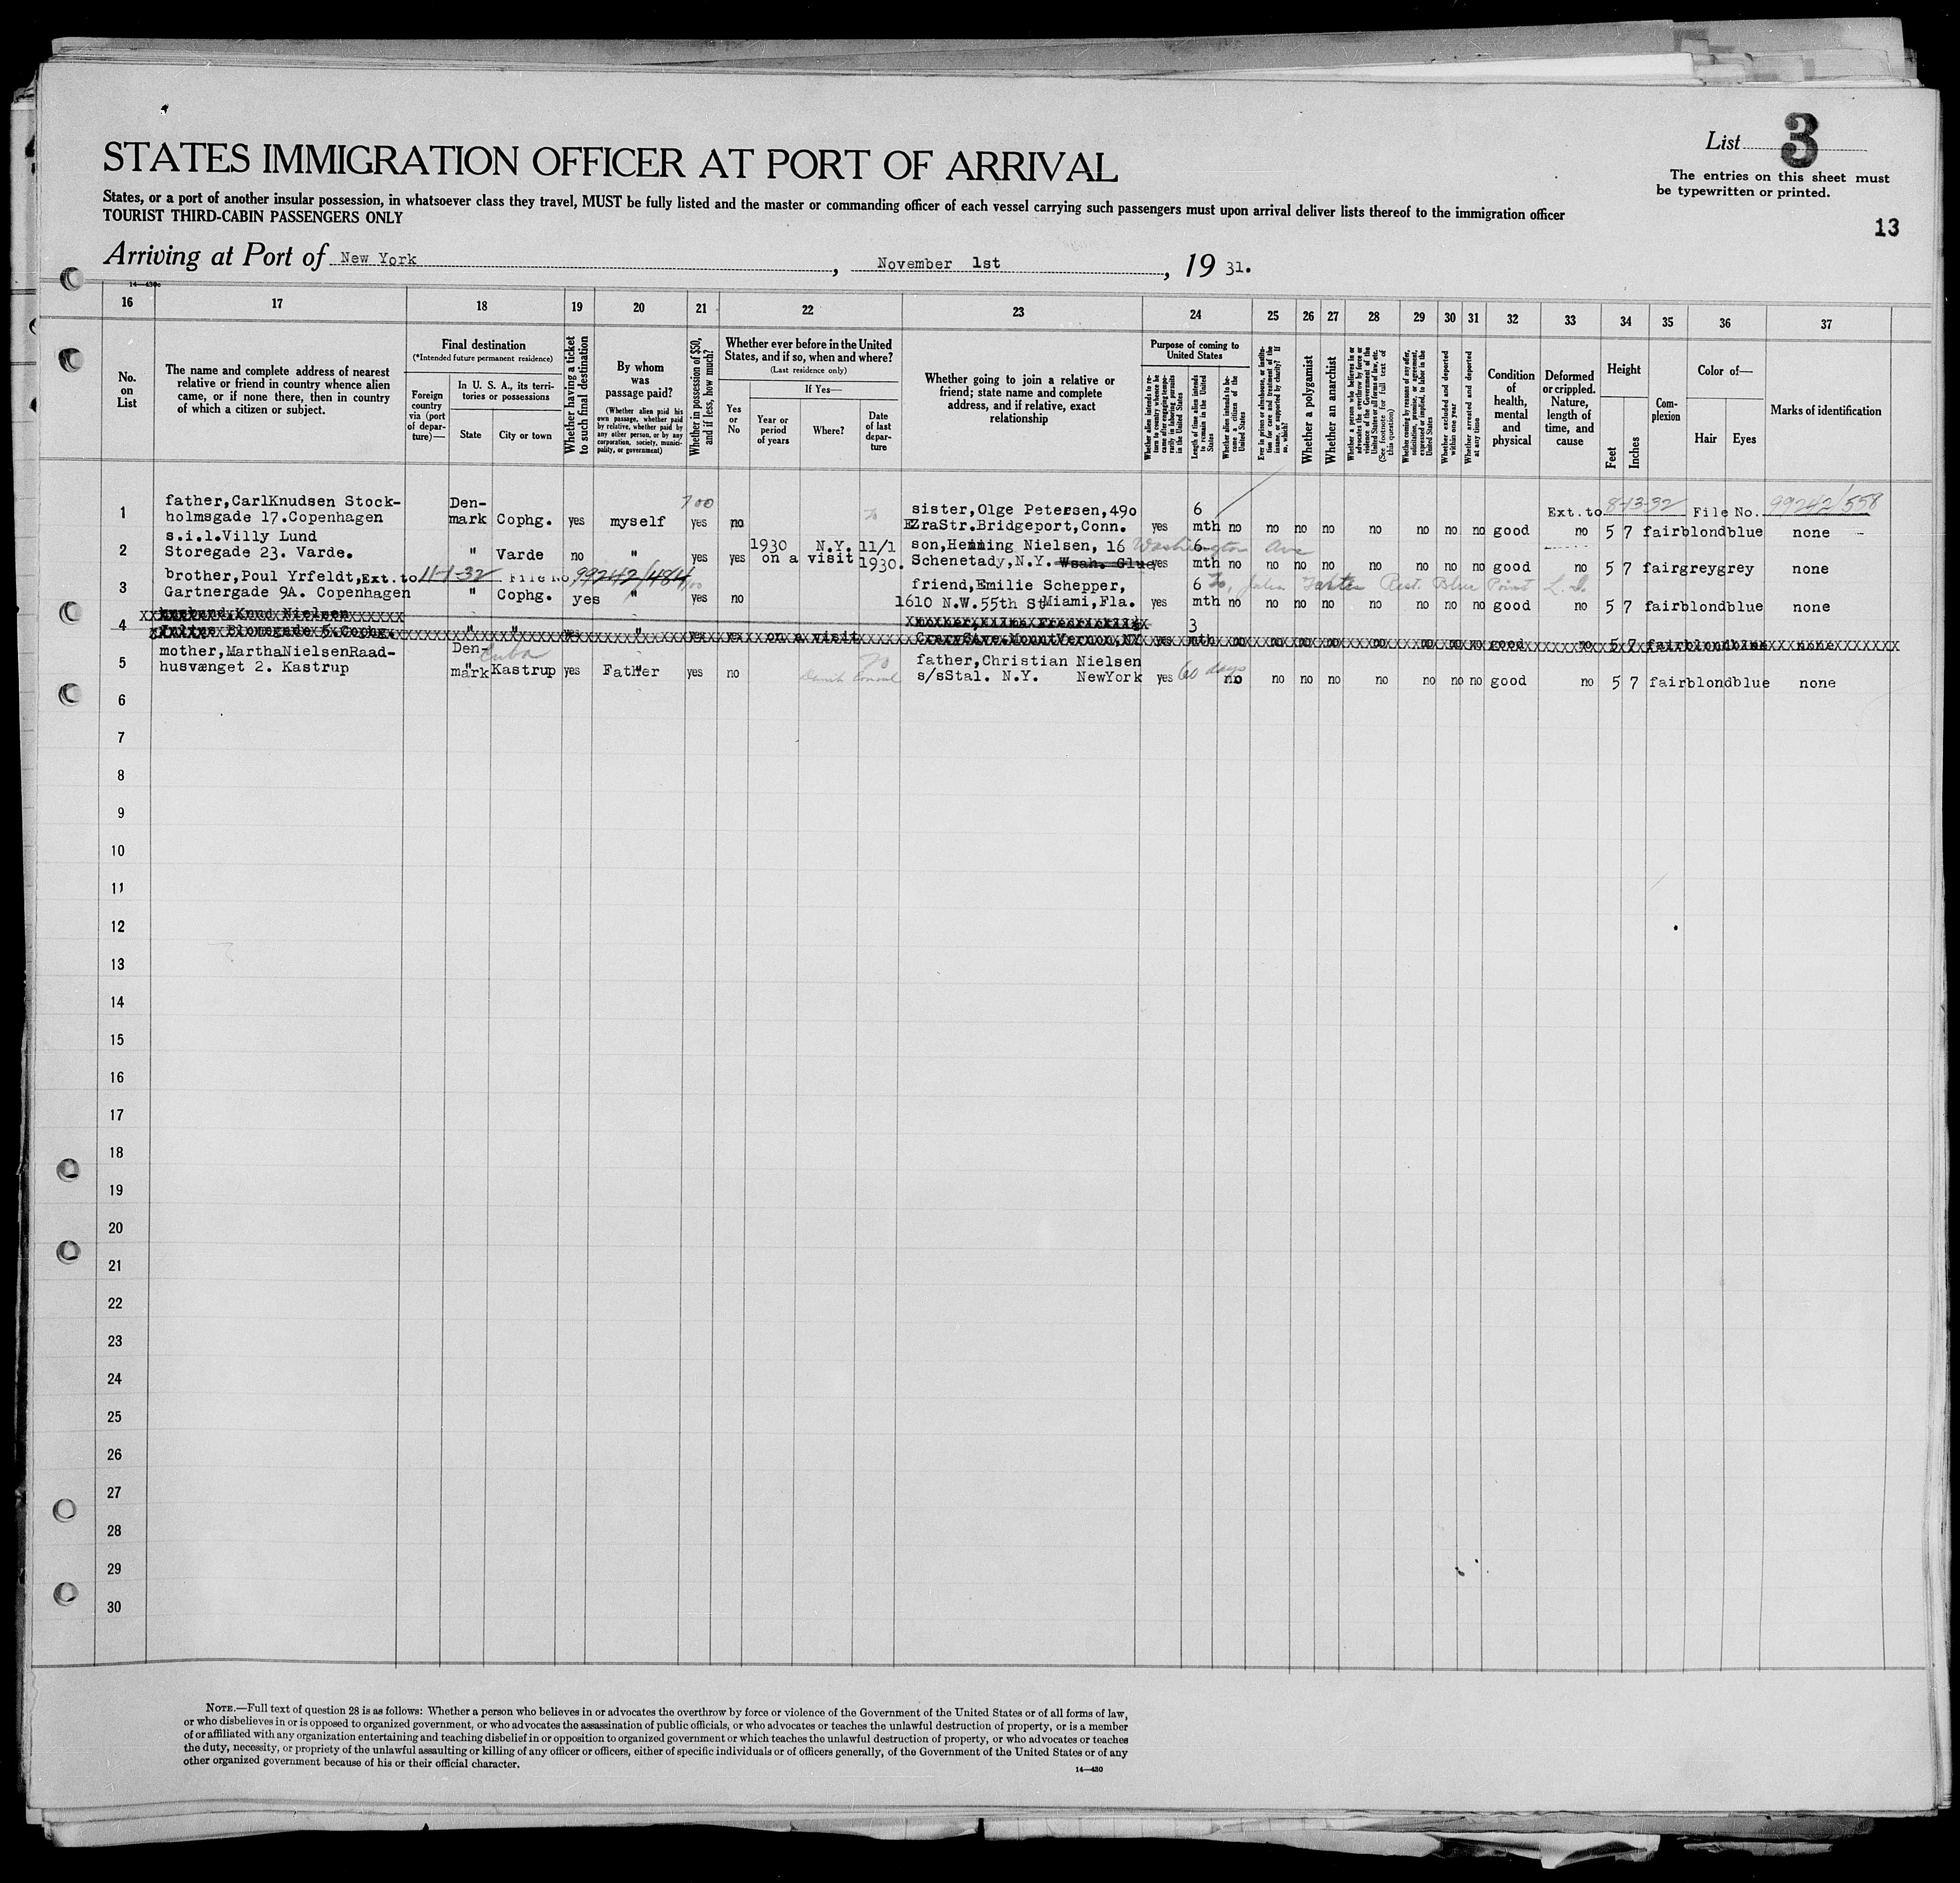 List 3
STATES IMMIGRATION OFFICER AT PORT OF ARRIVAL
The entries on this sheet must
be typewritten or printed.
States, or a port of another insular possession, in whatsoever class they travel, MUST be fully listed and the master or commanding officer of each vessel carrying such passengers must upon arrival deliver lists thereof to the immigration officer
TOURIST THIRD-CABIN PASSENGERS ONLY
13
Arriving at Port of New York, November 1st, 19 31.
16 17 18 19 20 21 22 23 24 25 26 27 28 29 30 31 32 33 34 35 36 37
No. on List
The name and complete address of nearest relative or friend in country whence alien came, or if none there, then in country of which a citizen or subject.
Final destination
(*Intended future permanent residence)
Foreign country via (port of departure)—
In U. S. A., its territories or possessions
State
City or town
Whether having a ticket to such final destination
By whom was passage paid?
(Whether alien paid his own passage, whether paid by relative, whether paid by any other person, or by any corporation, society, municipality, or government)
Whether in possession of $50, and if less, how much?
Whether ever before in the United States, and if so, when and where?
(Last residence only)
Yes or No
If Yes—
Year or period of years
Where?
Date of last departure
Whether going to join a relative or friend; state name and complete address, and if relative, exact relationship
Purpose of coming to United States
Whether alien intends to return to country whence he came after engaging temporarily in laboring pursuits in the United States
Length of time alien intends to remain in the United States
Whether alien intends to become a citizen of the United States
Ever in prison or almshouse, or institution for care and treatment of the insane, or supported by charity? If so, which?
Whether a polygamist
Whether an anarchist
Whether a person who believes in or advocates the overthrow by force or violence of the Government of the United States or all forms of law, etc. (See footnote for full text of this question)
Whether coming by reasons of any offer, solicitation, promise, or agreement, expressed or implied, to labor in the United States
Whether excluded and deported within one year
Whether arrested and deported at any time
Condition of health, mental and physical
Deformed or crippled. Nature, length of time, and cause
Height
Feet
Inches
Complexion
Color of—
Hair
Eyes
Marks of identification
1 father,CarlKnudsen Stock- Den- 100 sister,Olge Petersen,49o 6 Ext.to 8-13-32 File No. 99242/558
holmsgade 17.Copenhagen mark Cophg. yes myself yes no EZraStr.Bridgeport,Conn. yes mth no no no no no no no no good no 5 7 fair blond blue none
2 s.i.l.Villy Lund 1930 N.Y. 11/1 son,Henning Nielsen, 16 Washington Ave 6
Storegade 23. Varde. " Varde no " yes yes on a visit 1930. Schenetady,N.Y. yes mth no no no no no no no no good no 5 7 fair grey grey none
3 brother,Poul Yrfeldt,Ext.to 11-1-32 File No. 99242/484 friend,Emilie Schepper, 6 Rest. Blue Point L.I.
Gartnergade 9A. Copenhagen " Cophg. yes " yes no 1610 N.W.55th St Miami,Fla. yes mth no no no no no no no no good no 5 7 fair blond blue none
4 husband Knud Nielsen 3
Blomsgade 5.Cophg. " " yes " yes yes on a visit MountVernon,NY yes mth no no no no no no no no good no 5 7 fair blond blue none
5 mother,MarthaNielsenRaad- Den- Cuba father,Christian Nielsen
husvænget 2. Kastrup mark " Kastrup yes Father yes no s/sStal. N.Y. NewYork yes 60 days no no no no no no no no good no 5 7 fair blond blue none
6
7
8
9
10
11
12
13
14
15
16
17
18
19
20
21
22
23
24
25
26
27
28
29
30
NOTE.—Full text of question 28 is as follows: Whether a person who believes in or advocates the overthrow by force or violence of the Government of the United States or of all forms of law,
or who disbelieves in or is opposed to organized government, or who advocates the assassination of public officials, or who advocates or teaches the unlawful destruction of property, or is a member
of or affiliated with any organization entertaining and teaching disbelief in or opposition to organized government or which teaches the unlawful destruction of property, or who advocates or teaches
the duty, necessity, or propriety of the unlawful assaulting or killing of any officer or officers, either of specific individuals or of officers generally, of the Government of the United States or of any
other organized government because of his or their official character.
14—430